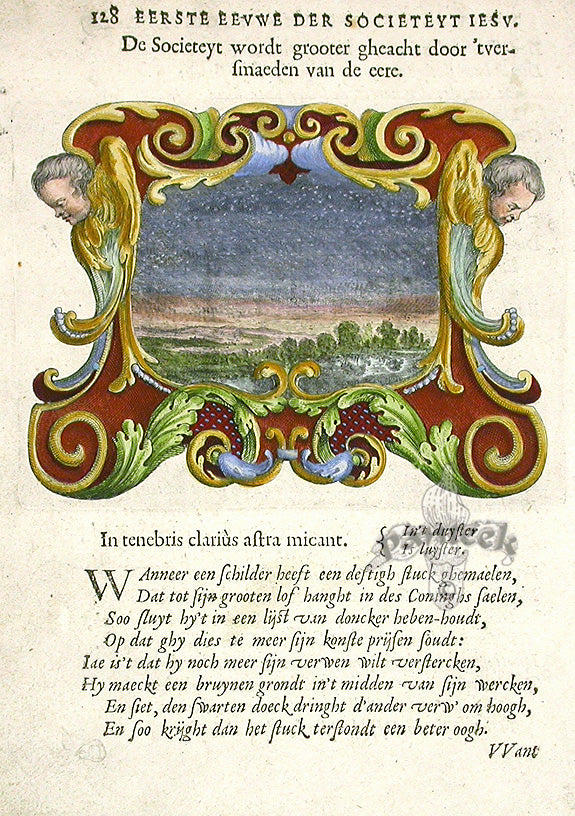 128 EERSTE EEVWE DER SOCIETEYT IESV.
De Societeyt wordt grooter gheacht door 'tver-
smaeden van de eere.
In tenebris clariùs astra micant. { In't duyster
Is luyster.
WAnneer een schilder heeft een deftigh stuck ghemaelen,
Dat tot sijn grooten lof hanght in des Coninghs saelen,
Soo sluyt hy't in een lijst van doncker heben-houdt,
Op dat ghy dies te meer sijn konste prijsen soudt:
Iae is't dat hy noch meer sijn verwen wilt verstercken,
Hy maeckt een bruynen grondt in't midden van sijn wercken,
En siet, den swarten doeck dringht d'ander verw' om hoogh,
En soo krijght dan het stuck terstondt een beter oogh.
VVant